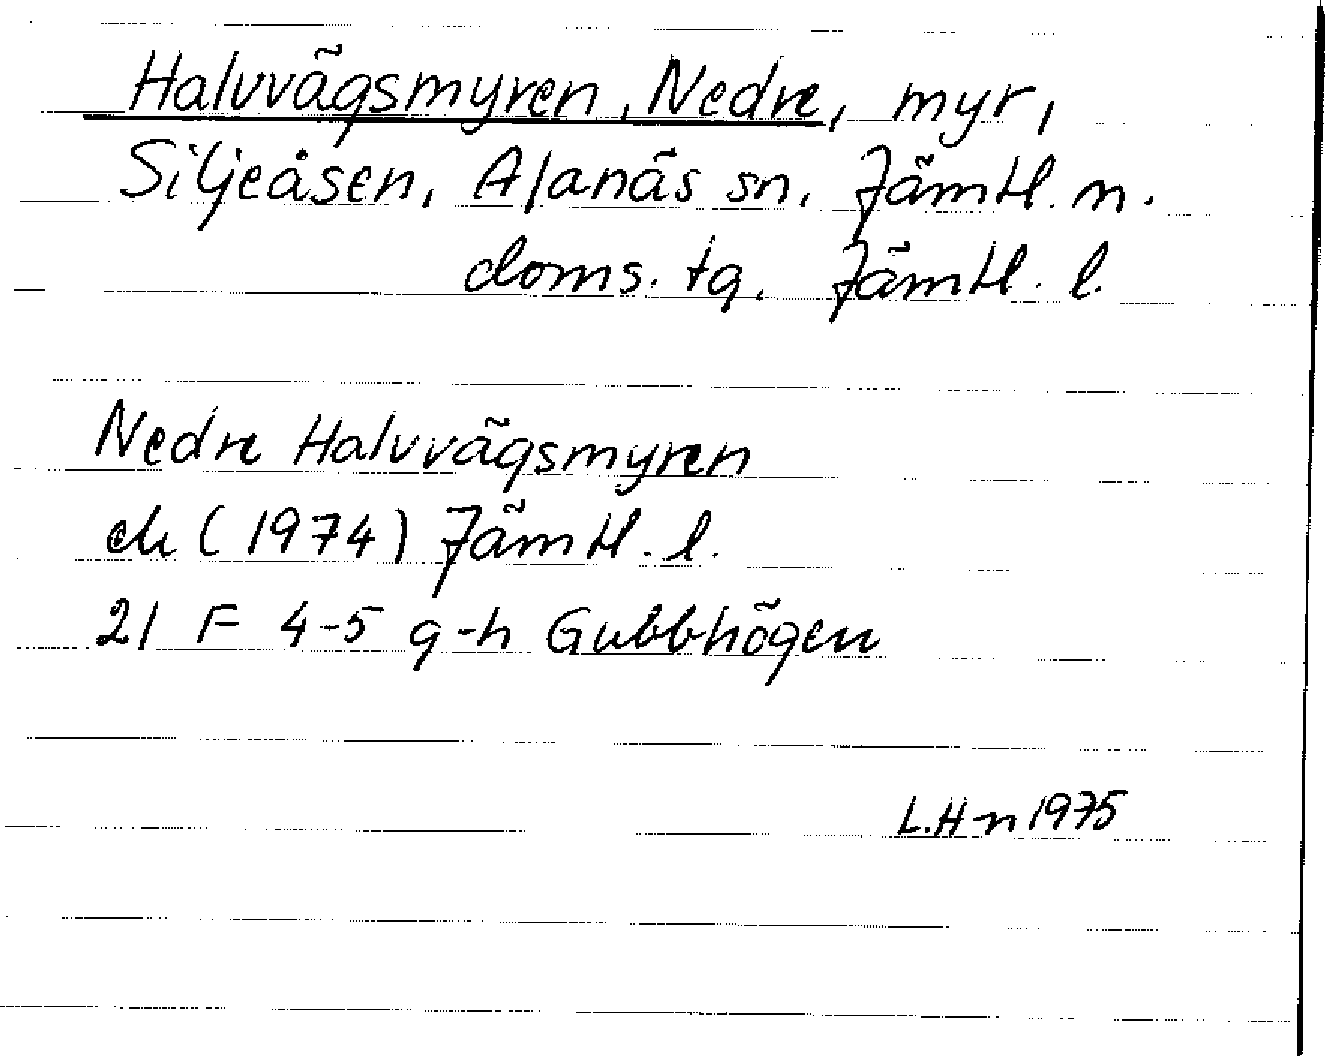 Halvvägsmyren, Nedre, myr,
Siljeåsen, Alanäs sn. Jämtl. n.
doms. tg. Jämtl. l.
Nedre Halvvägsmyren
ek (1974) Jämtl. l.
21 F 4-5 g-h Gubbhögen
L.H-n 1975